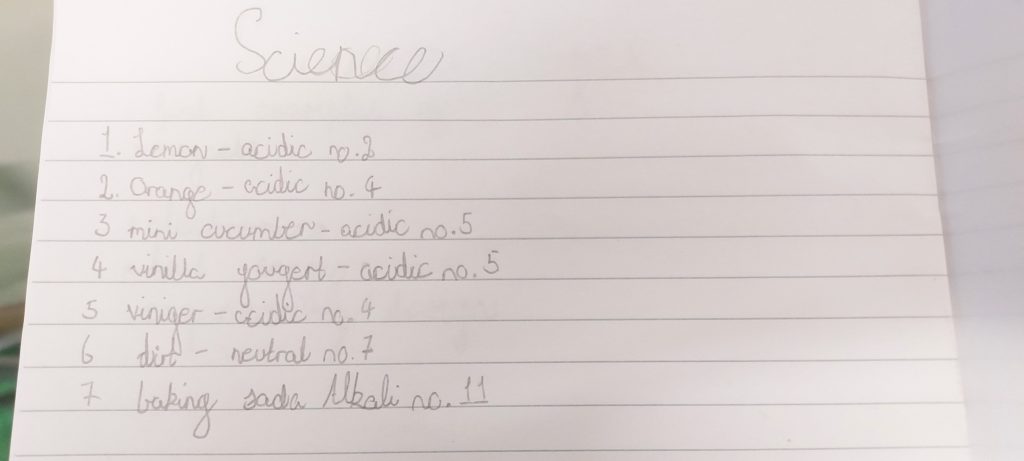 Science
1. Lemon - acidic no.2
2. Orange - acidic no. 4
3 mini cucumber - acidic no.5
4 vinilla yougert - acidic no. 5
5 viniger - acidic no. 4
6 dirt - neutral no. 7
7 baking sada Alkali no. 11